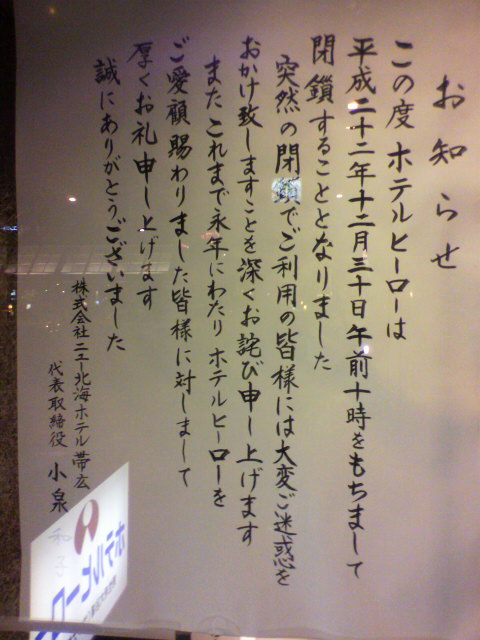 お知らせ
この度 ホテルヒーローは
平成二十二年十二月三十日午前十時をもちまして
閉鎖することとなりました
突然の閉鎖でご利用の皆様には大変ご迷惑を
おかけ致しますことを深くお詫び申し上げます
またこれまで永年にわたり ホテルヒーローを
ご愛顧賜わりました皆様に対しまして
厚くお礼申し上げます
誠にありがとうございました
株式会社ニュー北海ホテル帯広
代表取締役 小泉
ホテルヒーロ